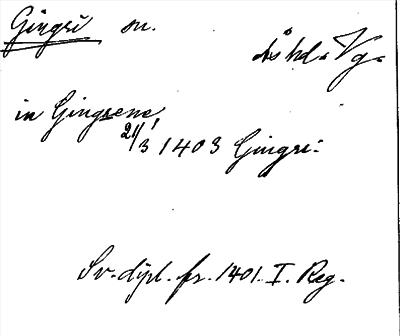 Gingri sn.
Ås hd. Vg.
in Gingrene,
21/3 1403 Gingri.
Sv. dipl. fr. 1401. I. Reg.